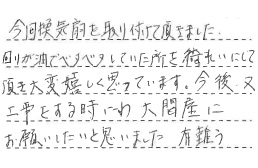 今回換気扇を取り付けて頂きました
回りが油でベタベタしていた所を綺麗にして
頂き大変嬉しく思っています。今後又
工事をする時にわ大間産に
お願いしたいと思いました 有難う